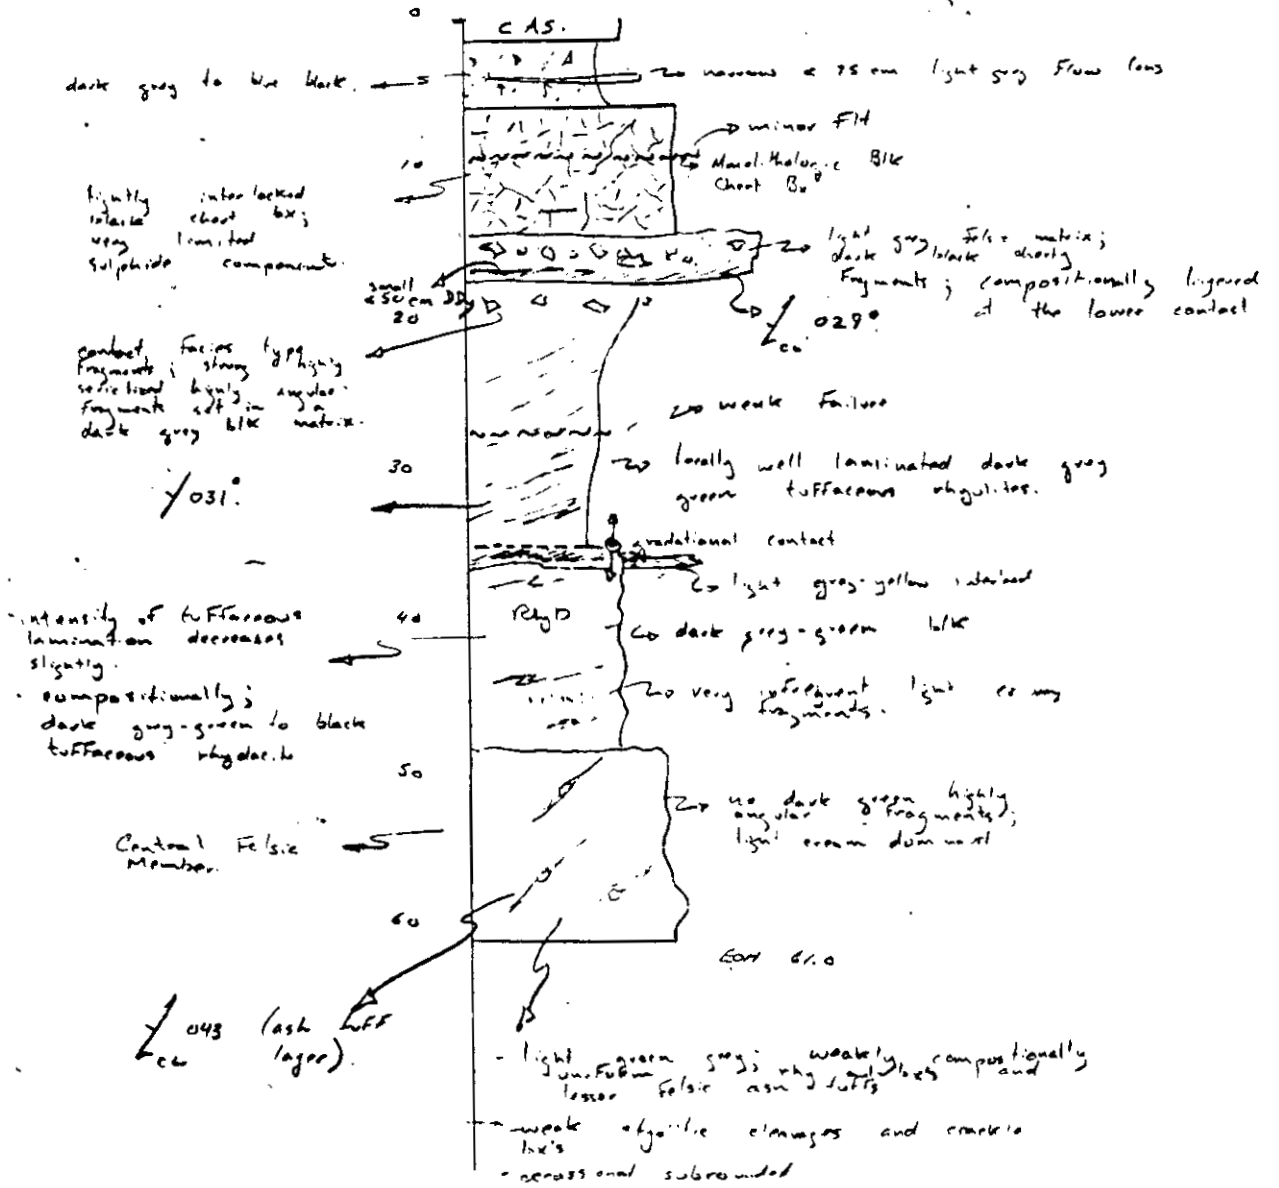 0
CAS.
dark grey to blue black.
5
narrow < 75 cm light grey Flow lens
minor Flt
10
Monolithologic Blk
Chert Bx
tightly interlocked
black chert bx;
very limited
sulphide component.
light grey Felsic matrix;
dark black cherty
Fragments; compositionally layered
at the lower contact
small
< 50 cm
20
029°
ca
contact Facies type
Fragments; strong highly
sericitized highly angular
Fragments set in a
dark grey blk matrix.
weak Failure
30
locally well laminated dark grey
green tuffaceous rhyolites.
031°
gradational contact
light grey-yellow interbed
- intensity of tuffaceous
lamination decreases
slightly.
40
RhyD
dark grey-green blk
very infrequent light creamy
fragments.
- compositionally;
dark grey-green to black
tuffaceous rhydacite
50
no dark green highly
angular fragments;
light cream dominant
Central Felsic
Member.
60
EOH 61.0
043 (ash tuff
layer).
ca
- light green grey; weakly compositionally
uniform rhy bxs and
lesser Felsic ash tuffs
- weak cleavages and crackle
bx's
- occassional subrounded